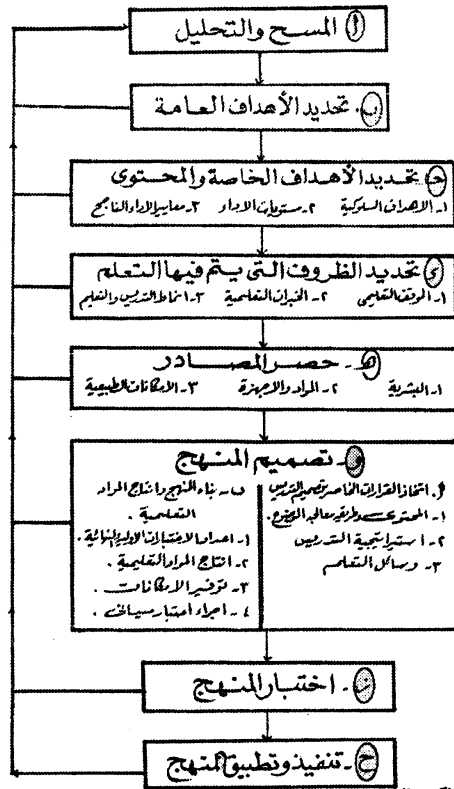 أ المسح والتحليل
ب- تحديد الأهداف العامة
ج- تحديد الأهداف الخاصة والمحتوى
١- الاهداف السلوكية ٢- مستويات الاداء ٣- معايير الاداء الناجح
د تحديد الظروف التي يتم فيها التعلم
١- الموقف التعليمى ٢- الخبرات التعليمية ٣- انماط التدريس والتعليم
هـ- حصر المصادر
١- البشرية ٢- المواد والاجهزة ٣- الامكانات الطبيعية
و- تصميم المنهج
أ. اتخاذ القرارات الخاصة بتصميم التدريس
١- المحتوى وطريقة معالجة الموضوع.
٢- استراتيجية التدريس
٣- وسائل التعلم
ب- بناء المنهج وانتاج المواد
التعليمية.
١- اعداد الاختبارات الاولية والنهائية.
٢- انتاج المواد التعليمية.
٣- توفير الامكانات.
٤- اجراء اختبار ميدانى.
ز- اختبار المنهج
ح- تنفيذ وتطبيق المنهج